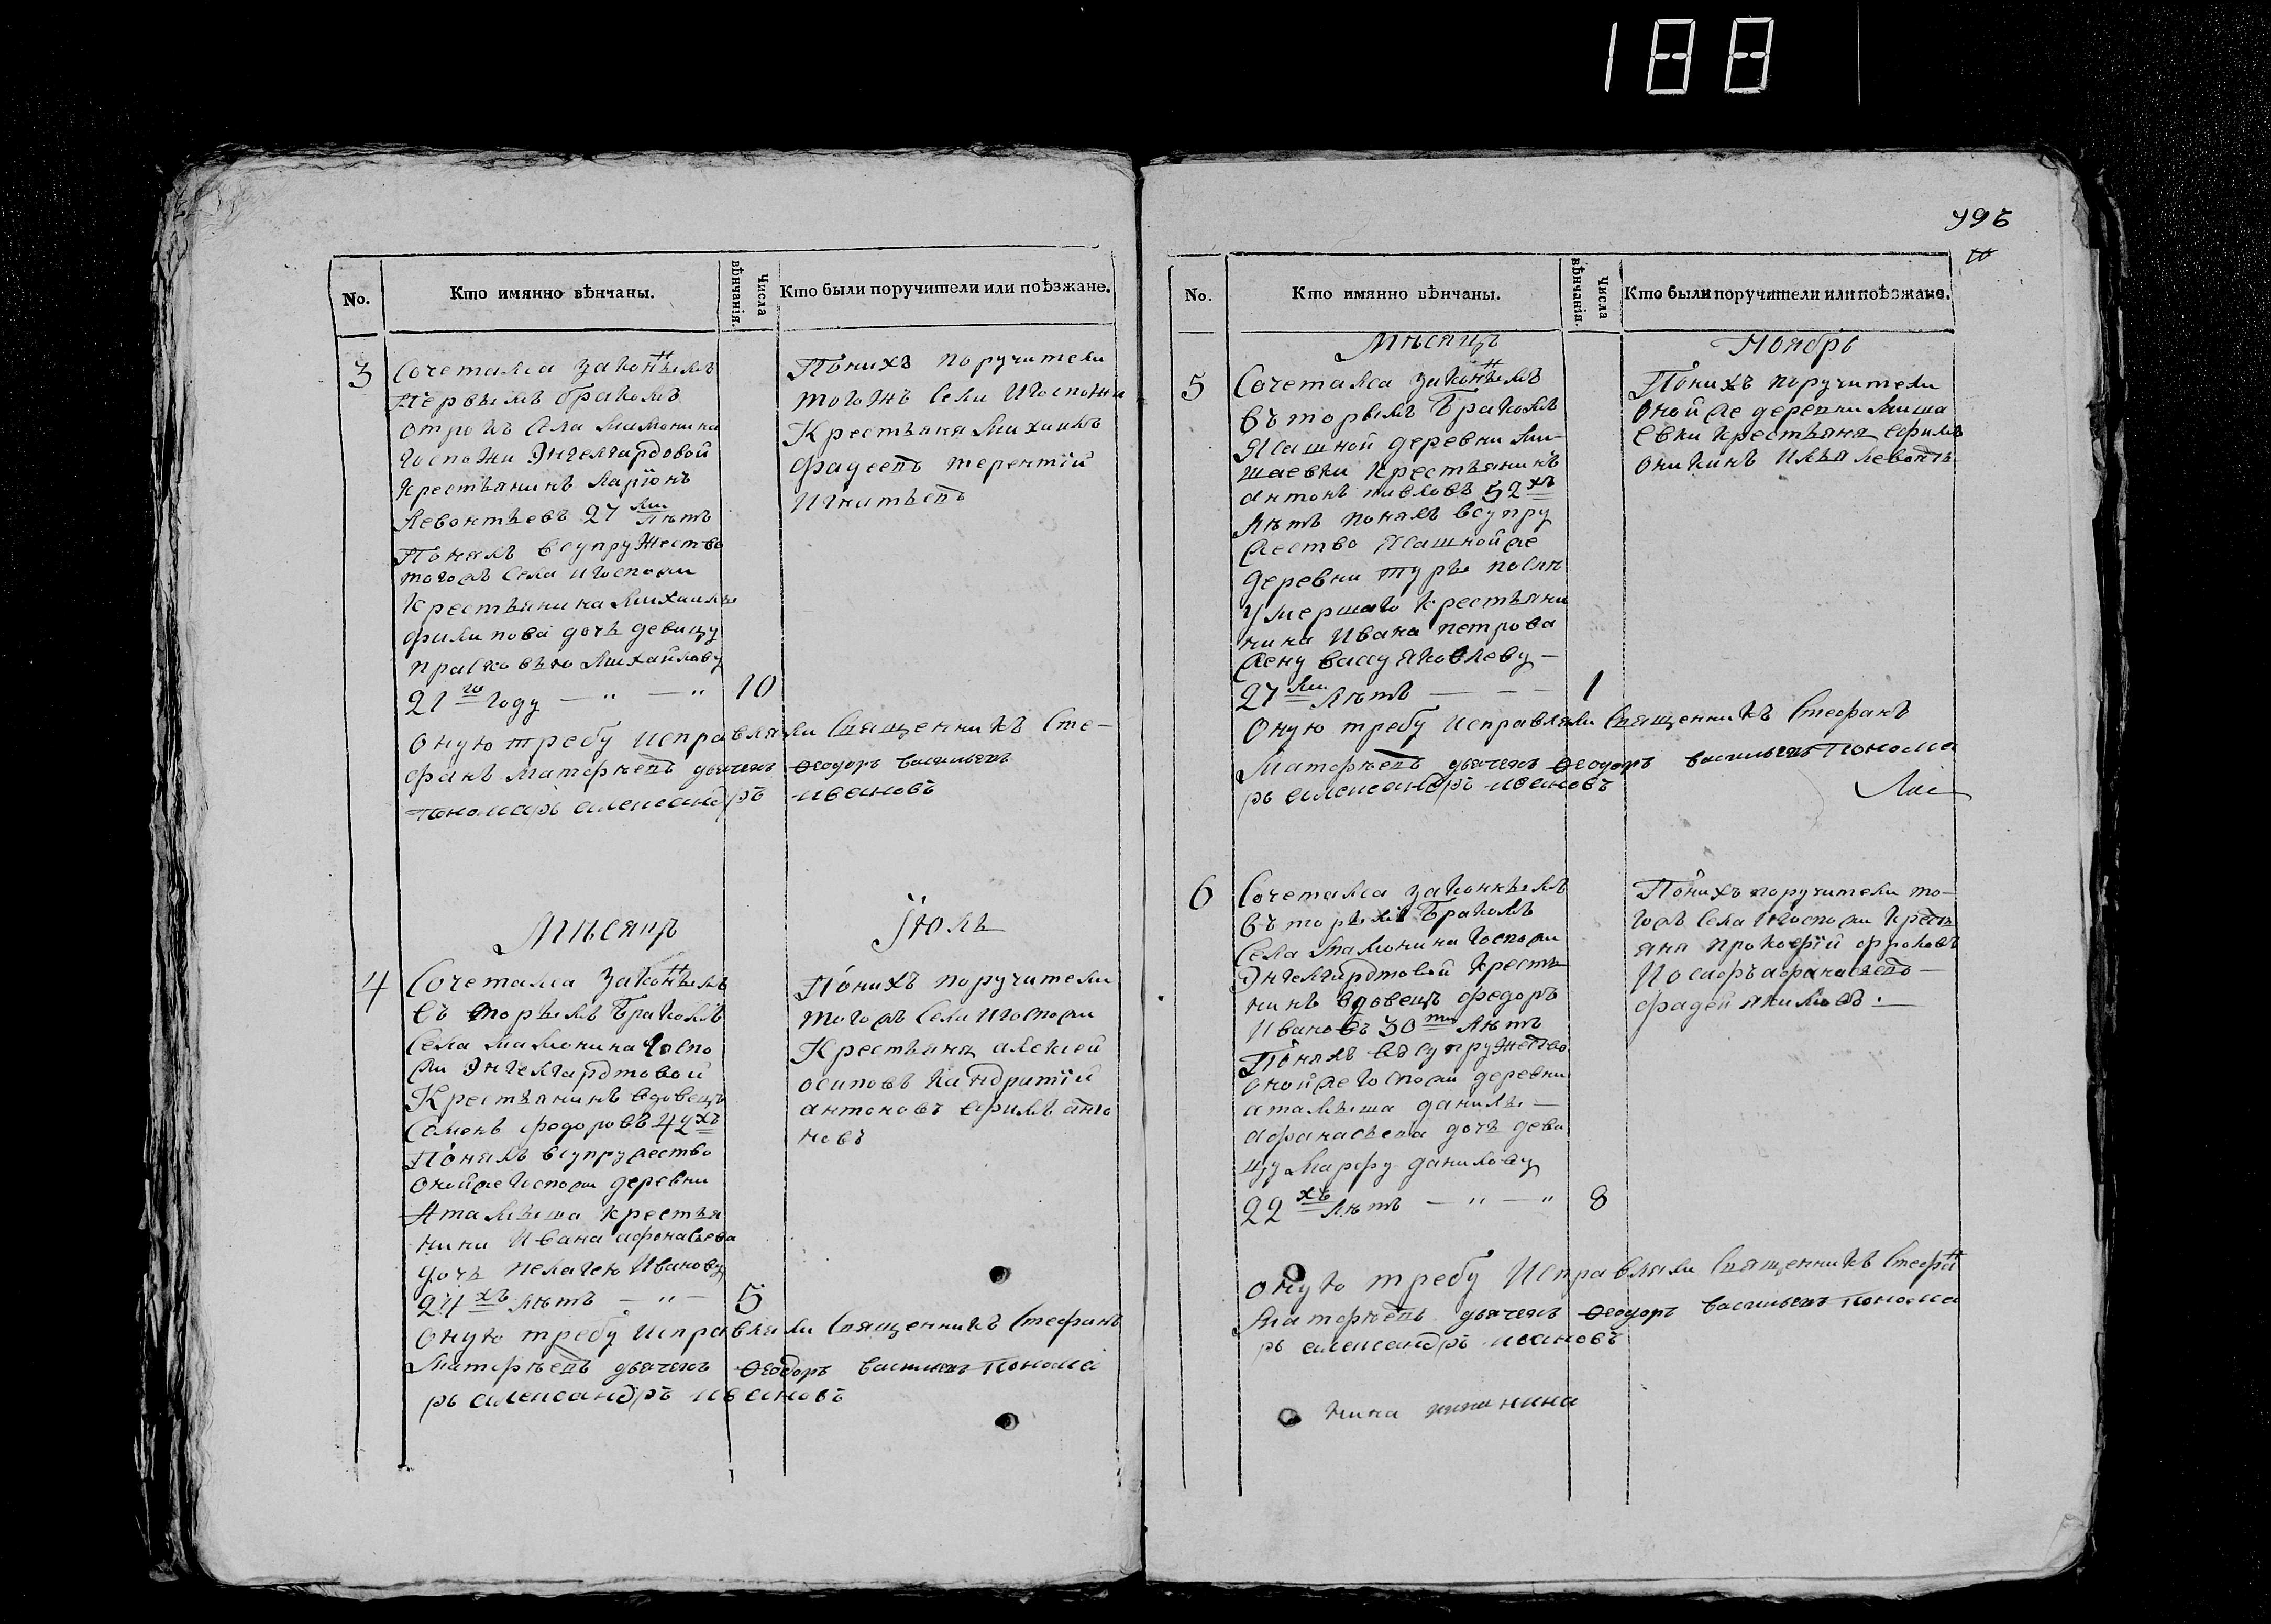 188
No.
Кто имянно вѣнчаны.
Числа вѣнчанія.
Кто были поручители или поѣзжане.
3
Сочетался законнымъ
первымъ бракомъ
отрокъ села Мамонина
Госпожи Энгелгардовой
крестьянинъ Ларіонъ
Левонтьевъ 27 ми лѣтъ
Понялъ всупружество
тогожъ села и госпожи
крестьянина Михаилы
Филипова дочь девицу
Прасковью Михайлову
21 го году — " — " 10
Поних поручители
тогожъ села и госпожи
Крестьяня Михаилъ
Фадеевъ терентій
Игнатьевъ
Оную требу исправляли Священникъ Сте-
фанъ Матфѣевъ дьячекъ Ѳеодоръ васильевъ
пономарь александръ ивановъ
Мѣсяцъ Іюль
4
Сочетался законнымъ
въторымъ бракомъ
Села Мамонина Госпо
жи Энгелгардтовой
Крестьянинъ вдовецъ
Семенъ федоровъ 42 хъ
Понялъ всупружество
онойже Госпожи деревни
Аталыша крестья
нина Ивана афонасьева
дочь Пелагею Иванову
24 хъ лѣтъ — " — 5
Понихъ поручители
тогожъ села и госпожи
Крестьяня алексей
осиповъ Кандратій
антоновъ ефимъ анто
новъ
Оную требу исправляли Священникъ Стефанъ
Матфѣевъ дьячекъ Ѳеодоръ васильевъ понома
рь александръ ивановъ
No.
Кто имянно вѣнчаны.
Числа вѣнчанія.
Кто были поручители или поѣзжане.
Мѣсяцъ Ноябрь
5
Сочетался законнымъ
въторымъ Бракомъ
Ясашной деревни Ми-
шаевки крестьянинъ
антонъ павловъ 52 хъ
лѣтъ понялъ всупру
жество Ясашнойже
деревни туръ послѣ
умершаго крестьяни
нина Ивана петрова
жену вассу яковлеву —
27 ми лѣтъ — — — 1
Понихъ поручители
онойже деревни Миша
евки крестьяня ефимъ
оникинъ Илья
Оную требу исправляли Священникъ Стефанъ
Матфѣевъ дьячекъ Ѳеодоръ васильевъ понома
рь александръ ивановъ
6
Сочетался законнымъ
въторымъ Бракомъ
Села Мамонина Госпожи
Энгелгардтовой крестья
нинъ вдовецъ федоръ
Ивановъ 30 ти лѣтъ
Понялъ въсупружество
онойже Госпожи деревни
аталыша данилы —
Афанасьева дочь деви
цу Марфу данилову
22 хъ лѣтъ — " — " 8
Понихъ поручители то-
гожъ села игоспожи кресть
яня прокофій фроловъ
Иосифъ афанасьевъ —
фадей якимовъ . —
Оную требу Исправляли Священникъ Стефанъ
Матфѣевъ дьячекъ Ѳеодоръ васильевъ понома
рь александръ ивановъ